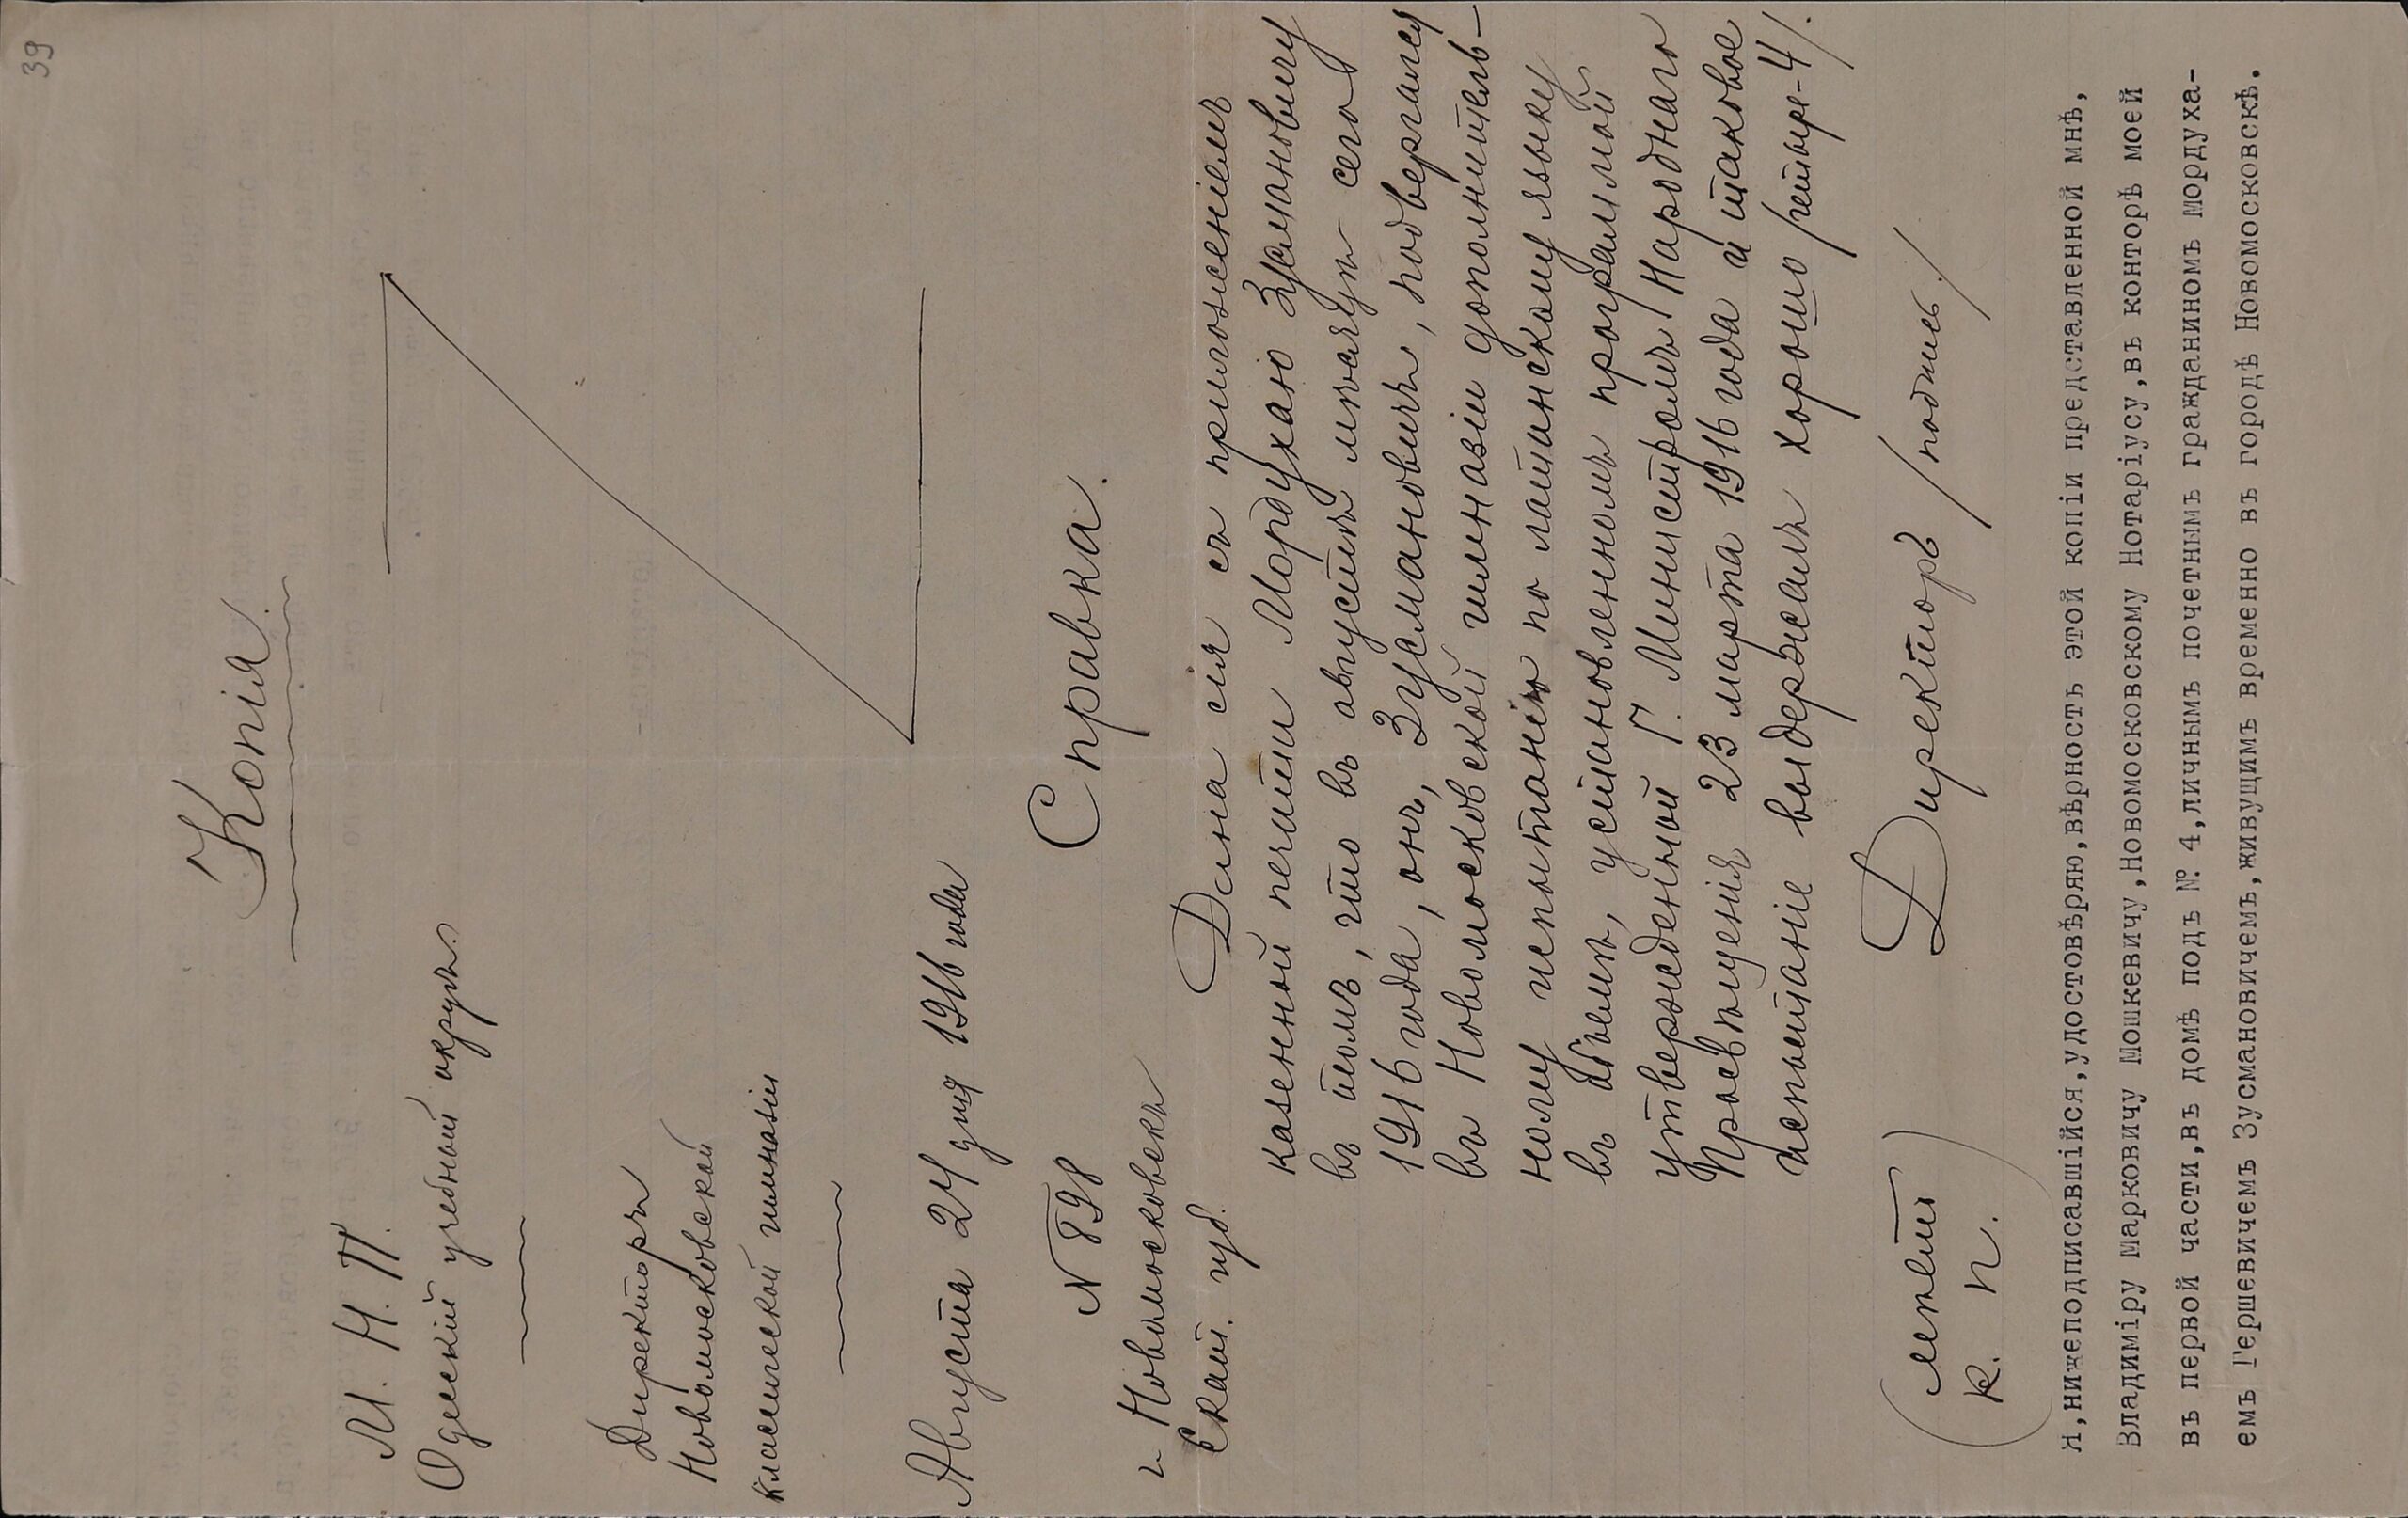 39
Копія.
М. Н. П.
Одесскій учебный округъ.
Директоръ
Новомосковской
классической гимназіи
Августа 24 дня 1916 года
№ 898
г. Новомосковскъ
Екат. губ.
Справка.
Дана сія съ приложеніемъ
казенной печати Мордухаю Зусмановичу
въ томъ, что въ августѣ мѣсяцѣ сего
1916 года, онъ, Зусмановичъ, подвергался
въ Новомосковской гимназіи дополнитель-
ному испытанію по латинскому языку
въ объемѣ, установленномъ программой
утвержденной Г. Министромъ Народнаго
Просвѣщенія 23 марта 1916 года и таковое
испытаніе выдержалъ хорошо /четыре-4/.
Директоръ /подпись/
(мѣсто
к. п.)
Я,нижеподписавшійся,удостовѣряю,вѣрность этой копіи представленной мнѣ,
Владиміру Марковичу Мошкевичу,Новомосковскому Нотаріусу,въ конторѣ моей
въ первой части,въ домѣ подъ № 4,личнымъ почетнымъ гражданиномъ Мордуха-
емъ Гершевичемъ Зусмановичемъ,живущимъ временно въ городѣ Новомосковскѣ.